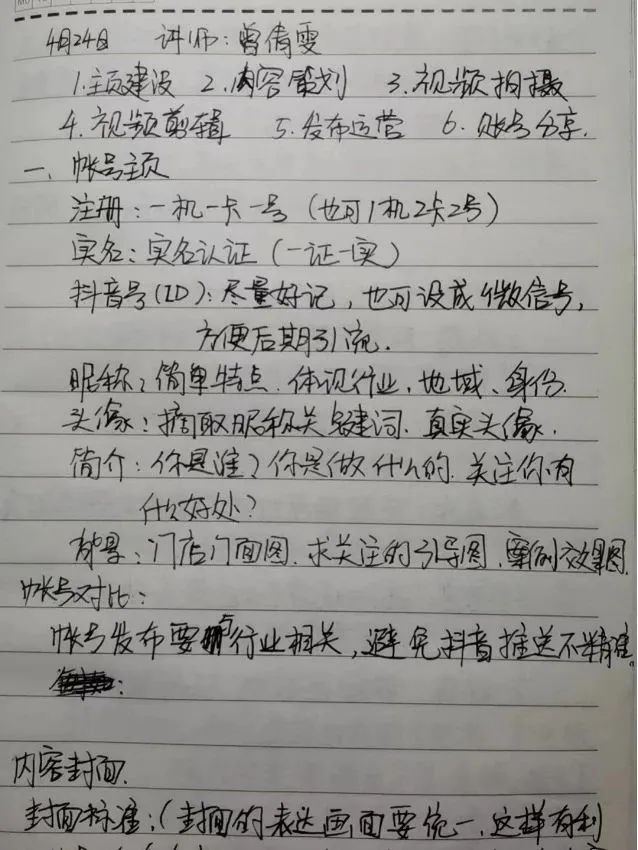 4月24日 讲师:曾倩雯
1.主页建设 2.内容策划 3.视频拍摄
4.视频剪辑 5.发布运营 6.账号分享.
一、帐号主页
注册:一机一卡一号(也可1机2卡2号)
实名:实名认证(一证一实)
抖音号(ID):尽量好记,也可设成微信号,
方便后期引流.
昵称:简单特点.体现行业,地域、身份.
头像:摘取昵称关键词.真实头像.
简介:你是谁?你是做什么的.关注你有
什么好处?
背景:门店门面图.求关注的引导图.案例效果图.
帐号对比:
帐号发布要与行业相关,避免抖音推送不精准。
内容封面.
封面标准:(封面的表达画面要统一,这样有利